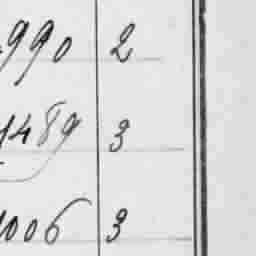 990 2
1489 3
1006 3